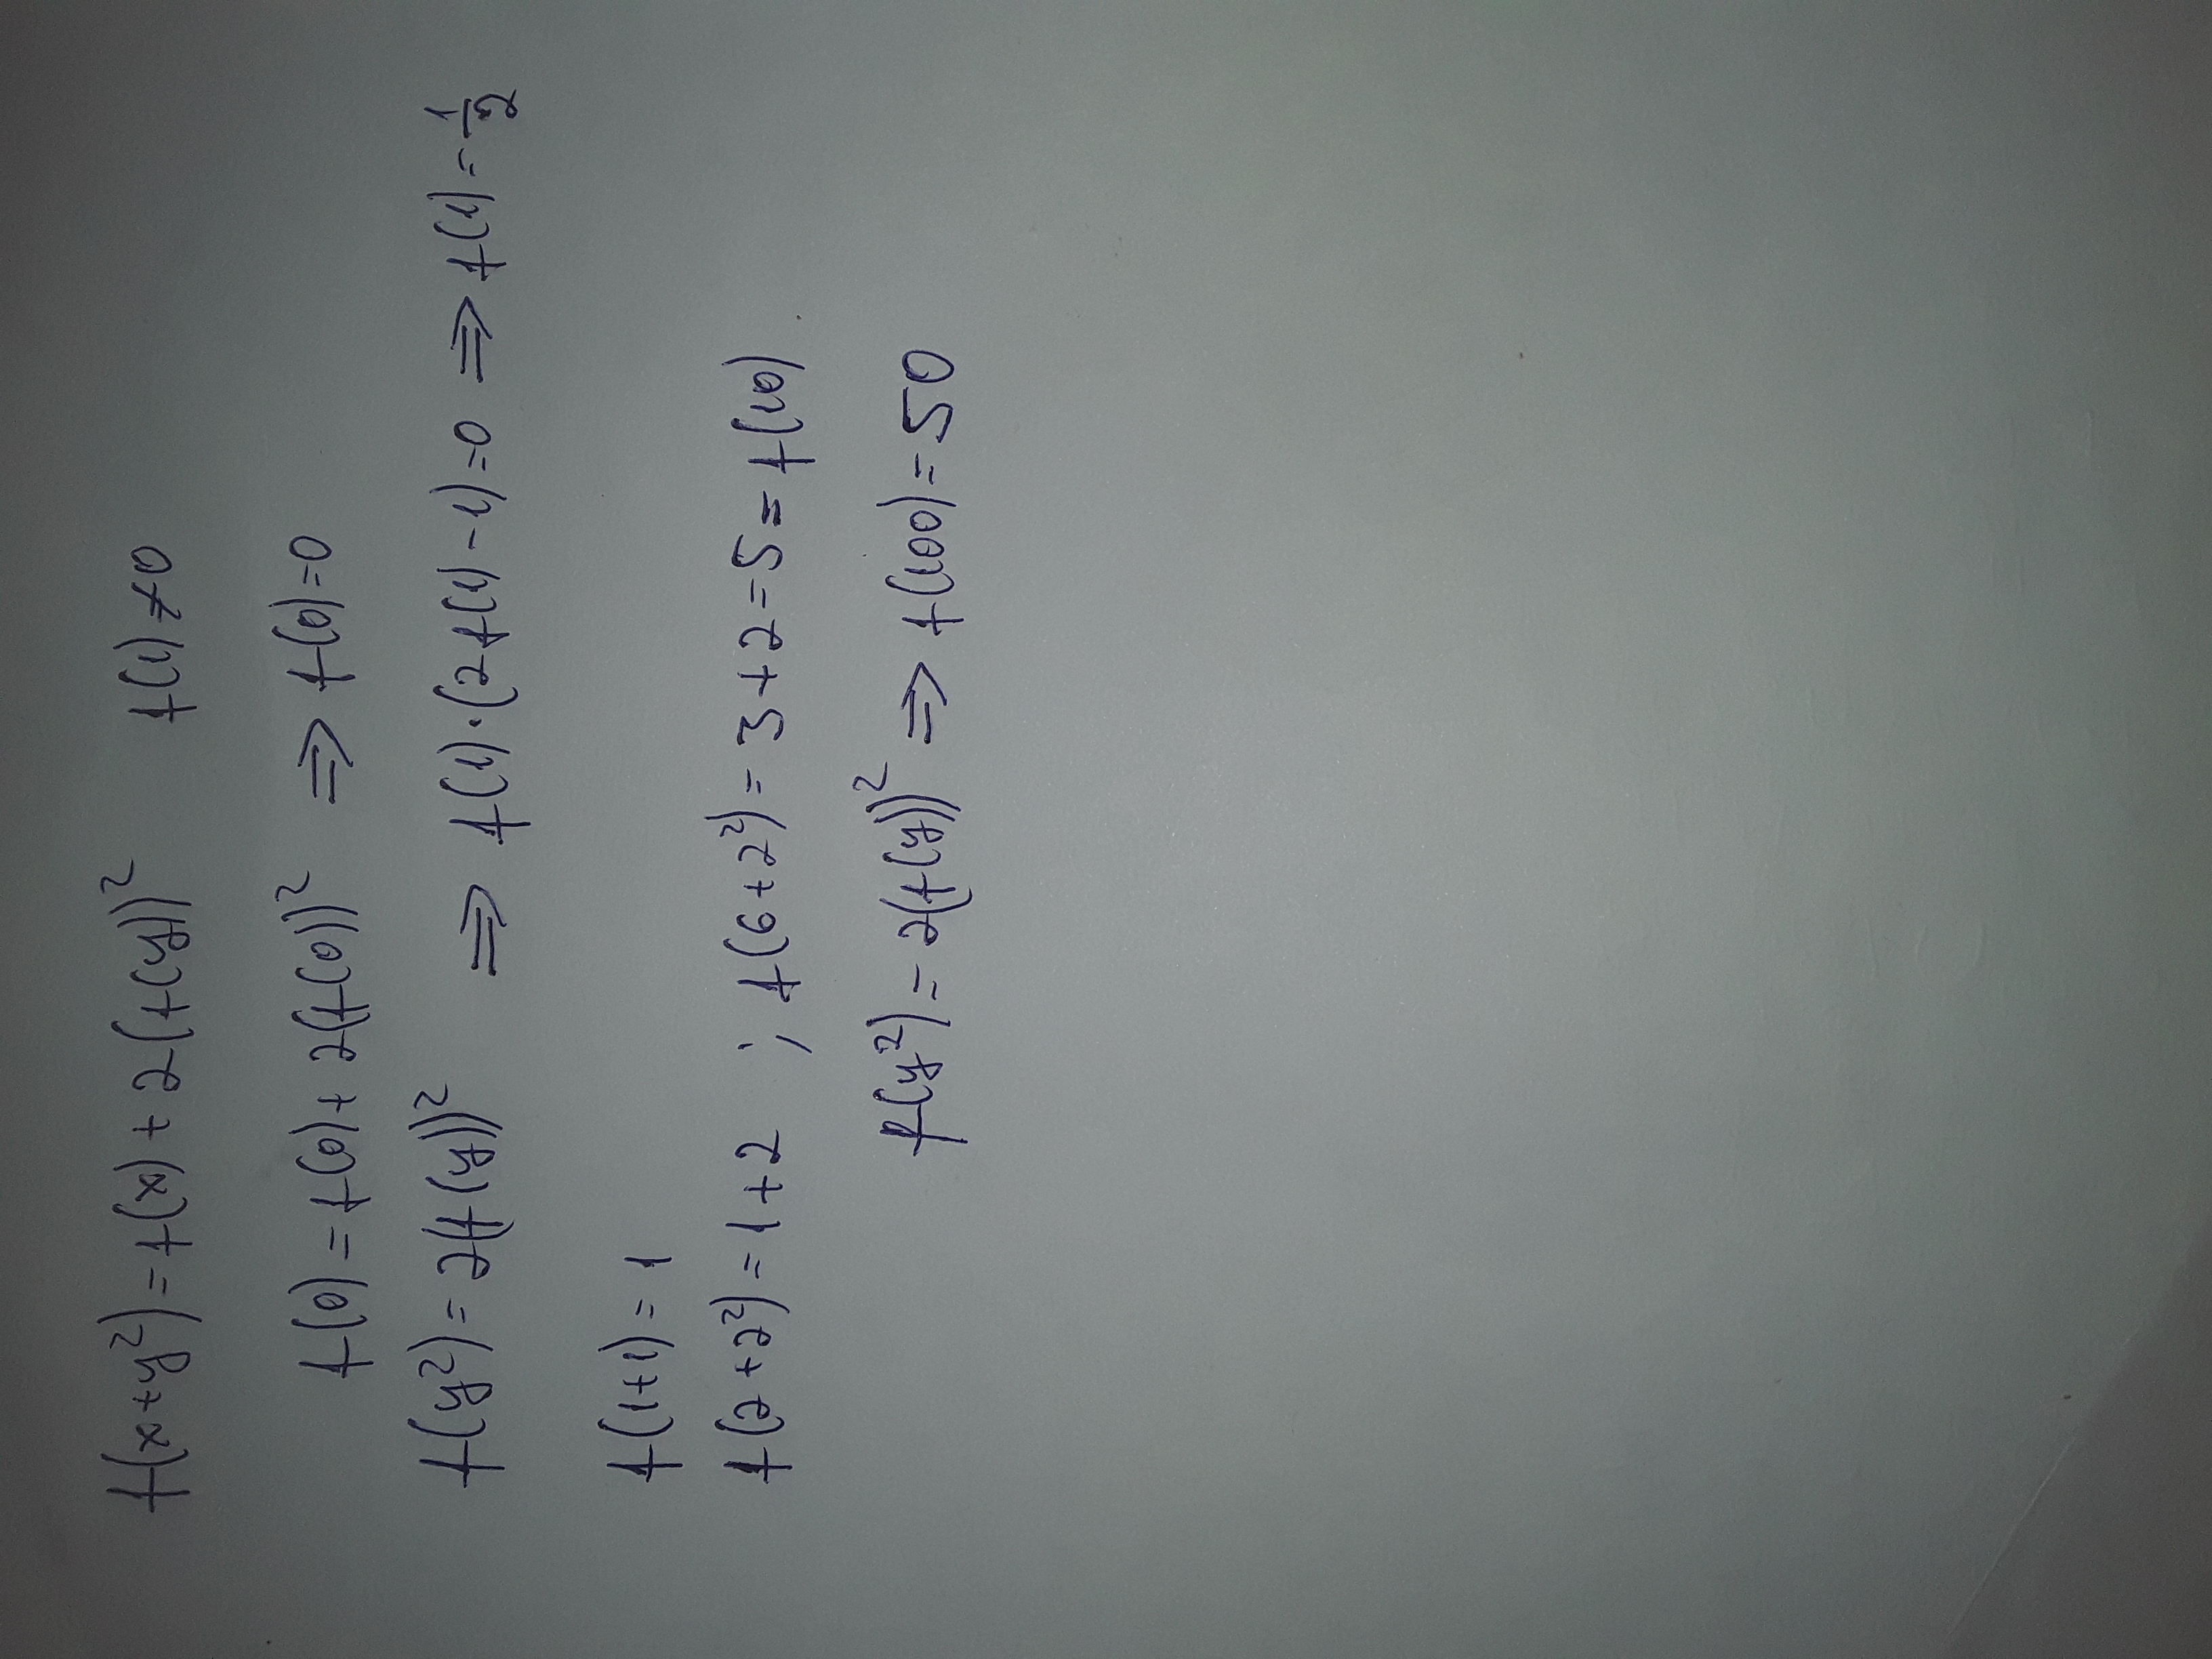 f(x+y²)=f(x)+2(f(y))² f(1)≠0
f(0)=f(0)+2(f(0))² ⇒ f(0)=0
f(y²)=2(f(y))² ⇒ f(1)·(2f(1)-1)=0 ⇒ f(1)=1/2
f(1+1)=1
f(2+2²)=1+2 ; f(6+2²)=3+2=5=f(10)
f(y²)=2(f(y))² ⇒ f(100)=50